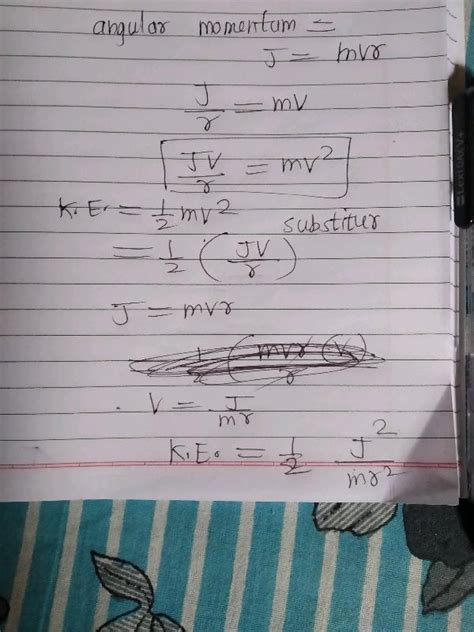 angular momentum =
J = mvr
J/r = mV
JV/r = mv²
K.E. = 1/2 mv²
substitur
= 1/2 (JV/r)
J = mvr
V = J/mr
K.E. = 1/2 J²/mr²